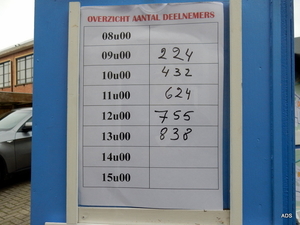 OVERZICHT AANTAL DEELNEMERS
08u00
09u00 224
10u00 432
11u00 624
12u00 755
13u00 838
14u00
15u00
ADS